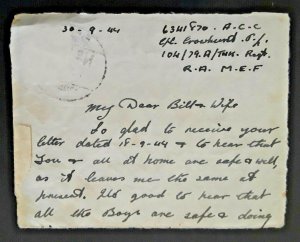 30-9-44
6341870. A.C.C
Cpl. Crowhurst. S.J.
104/79.A/Tnk. Regt.
R.A. M.E.F
My Dear Bill & Wife
So glad to receive your
letter dated 18-9-44 & to hear that
You & all at home are safe & well,
as it leaves me the same at
present. It's good to hear that
all the Boys are safe & doing